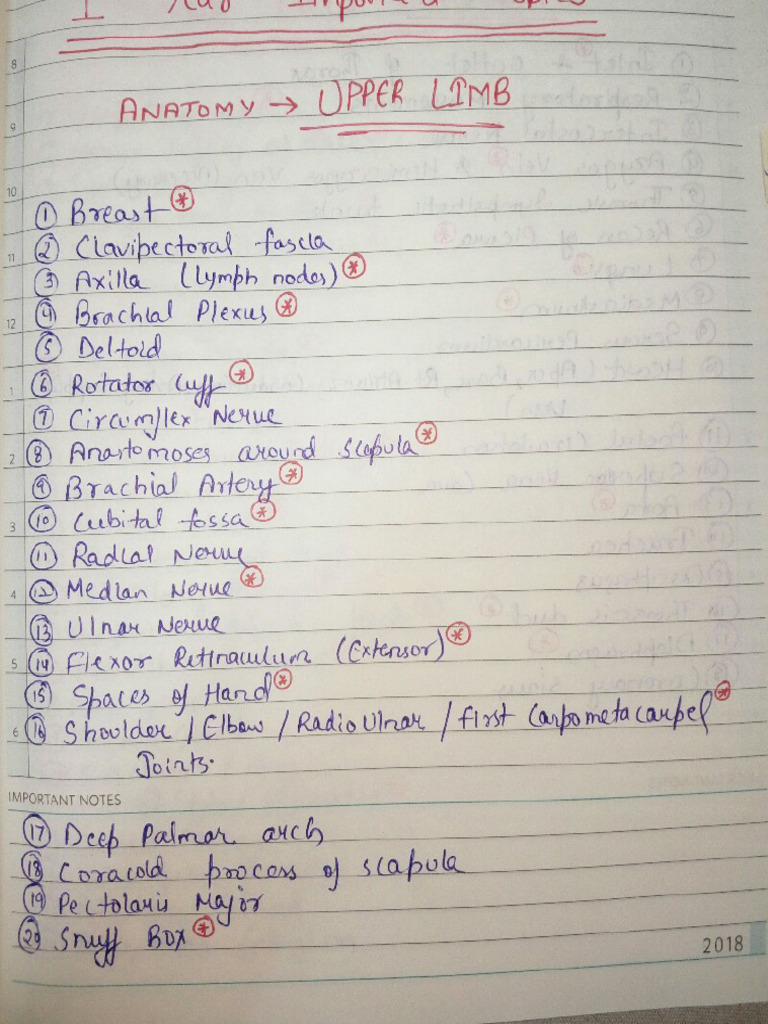 I
ANATOMY → UPPER LIMB
8
9
10
① Breast *
11
② Clavipectoral fascia
③ Axilla (lymph nodes) *
12
④ Brachial Plexus *
⑤ Deltoid
1
⑥ Rotator Cuff *
⑦ Circumflex Nerve
2
⑧ Anastomoses around scapula *
⑨ Brachial Artery *
3
⑩ Cubital fossa *
⑪ Radial Nerve
4
⑫ Median Nerve *
⑬ Ulnar Nerve
5
⑭ Flexor Retinaculum (Extensor) *
⑮ Spaces of Hand *
6
⑯ Shoulder / Elbow / Radio Ulnar / first Carpometacarpel *
Joints.
IMPORTANT NOTES
⑰ Deep Palmar arch
⑱ Coracoid process of scapula
⑲ Pectolaris Major
⑳ Snuff Box *
2018